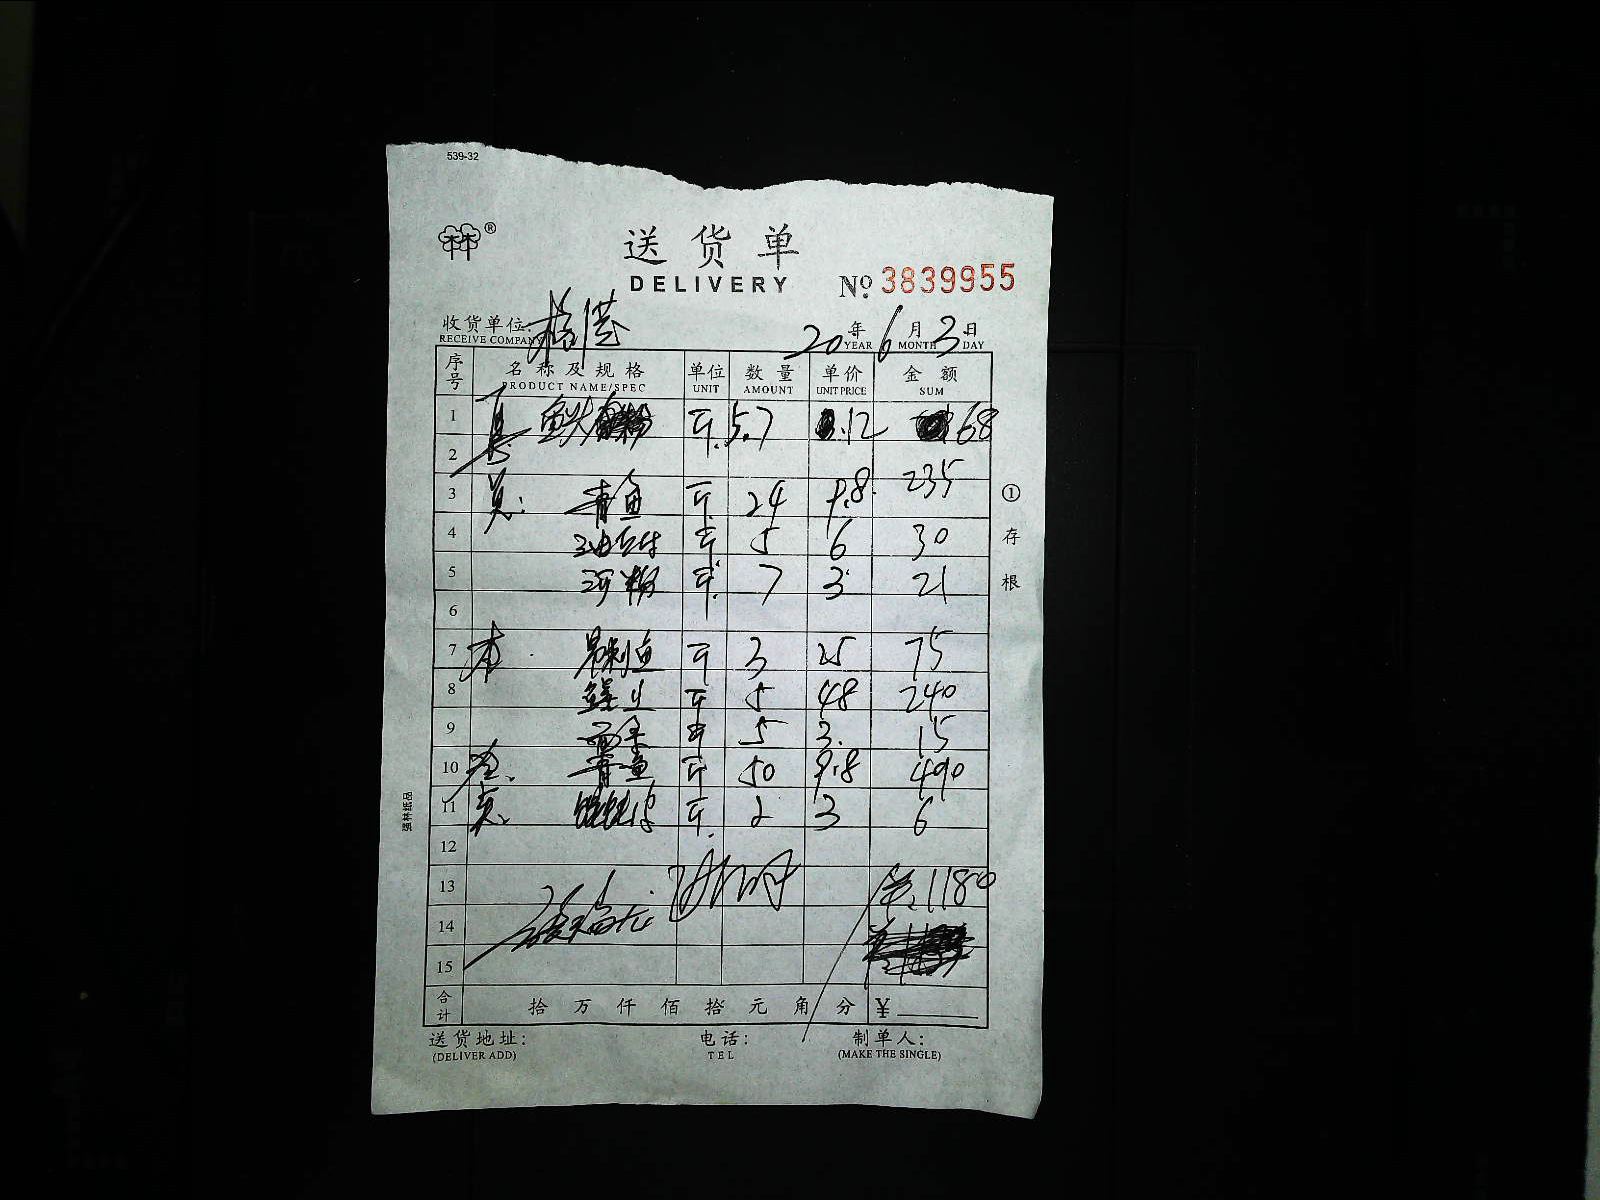 539-32
林®
送货单
DELIVERY № 3839955
收货单位: 20 年 6 月 3 日
RECEIVE COMPANY YEAR MONTH DAY
序号 名称及规格 单位 数量 单价 金额
PRODUCT NAME/SPEC UNIT AMOUNT UNIT PRICE SUM
1 鱼头 斤 5.7 12 68
2
3 青鱼 斤 24 9.8 235
4 油豆付 斤 5 6 30
5 河粉 斤 7 3 21
6
7 斤 3 25 75
8 斤 5 48 240
9 5 3 15
10 青鱼 斤 50 9.8 490
11 斤 2 3 6
12
13 1180
14
15
合计 拾 万 仟 佰 拾 元 角 分 ¥
送货地址: 电话: 制单人:
(DELIVER ADD) TEL (MAKE THE SINGLE)
①存根
强林纸品